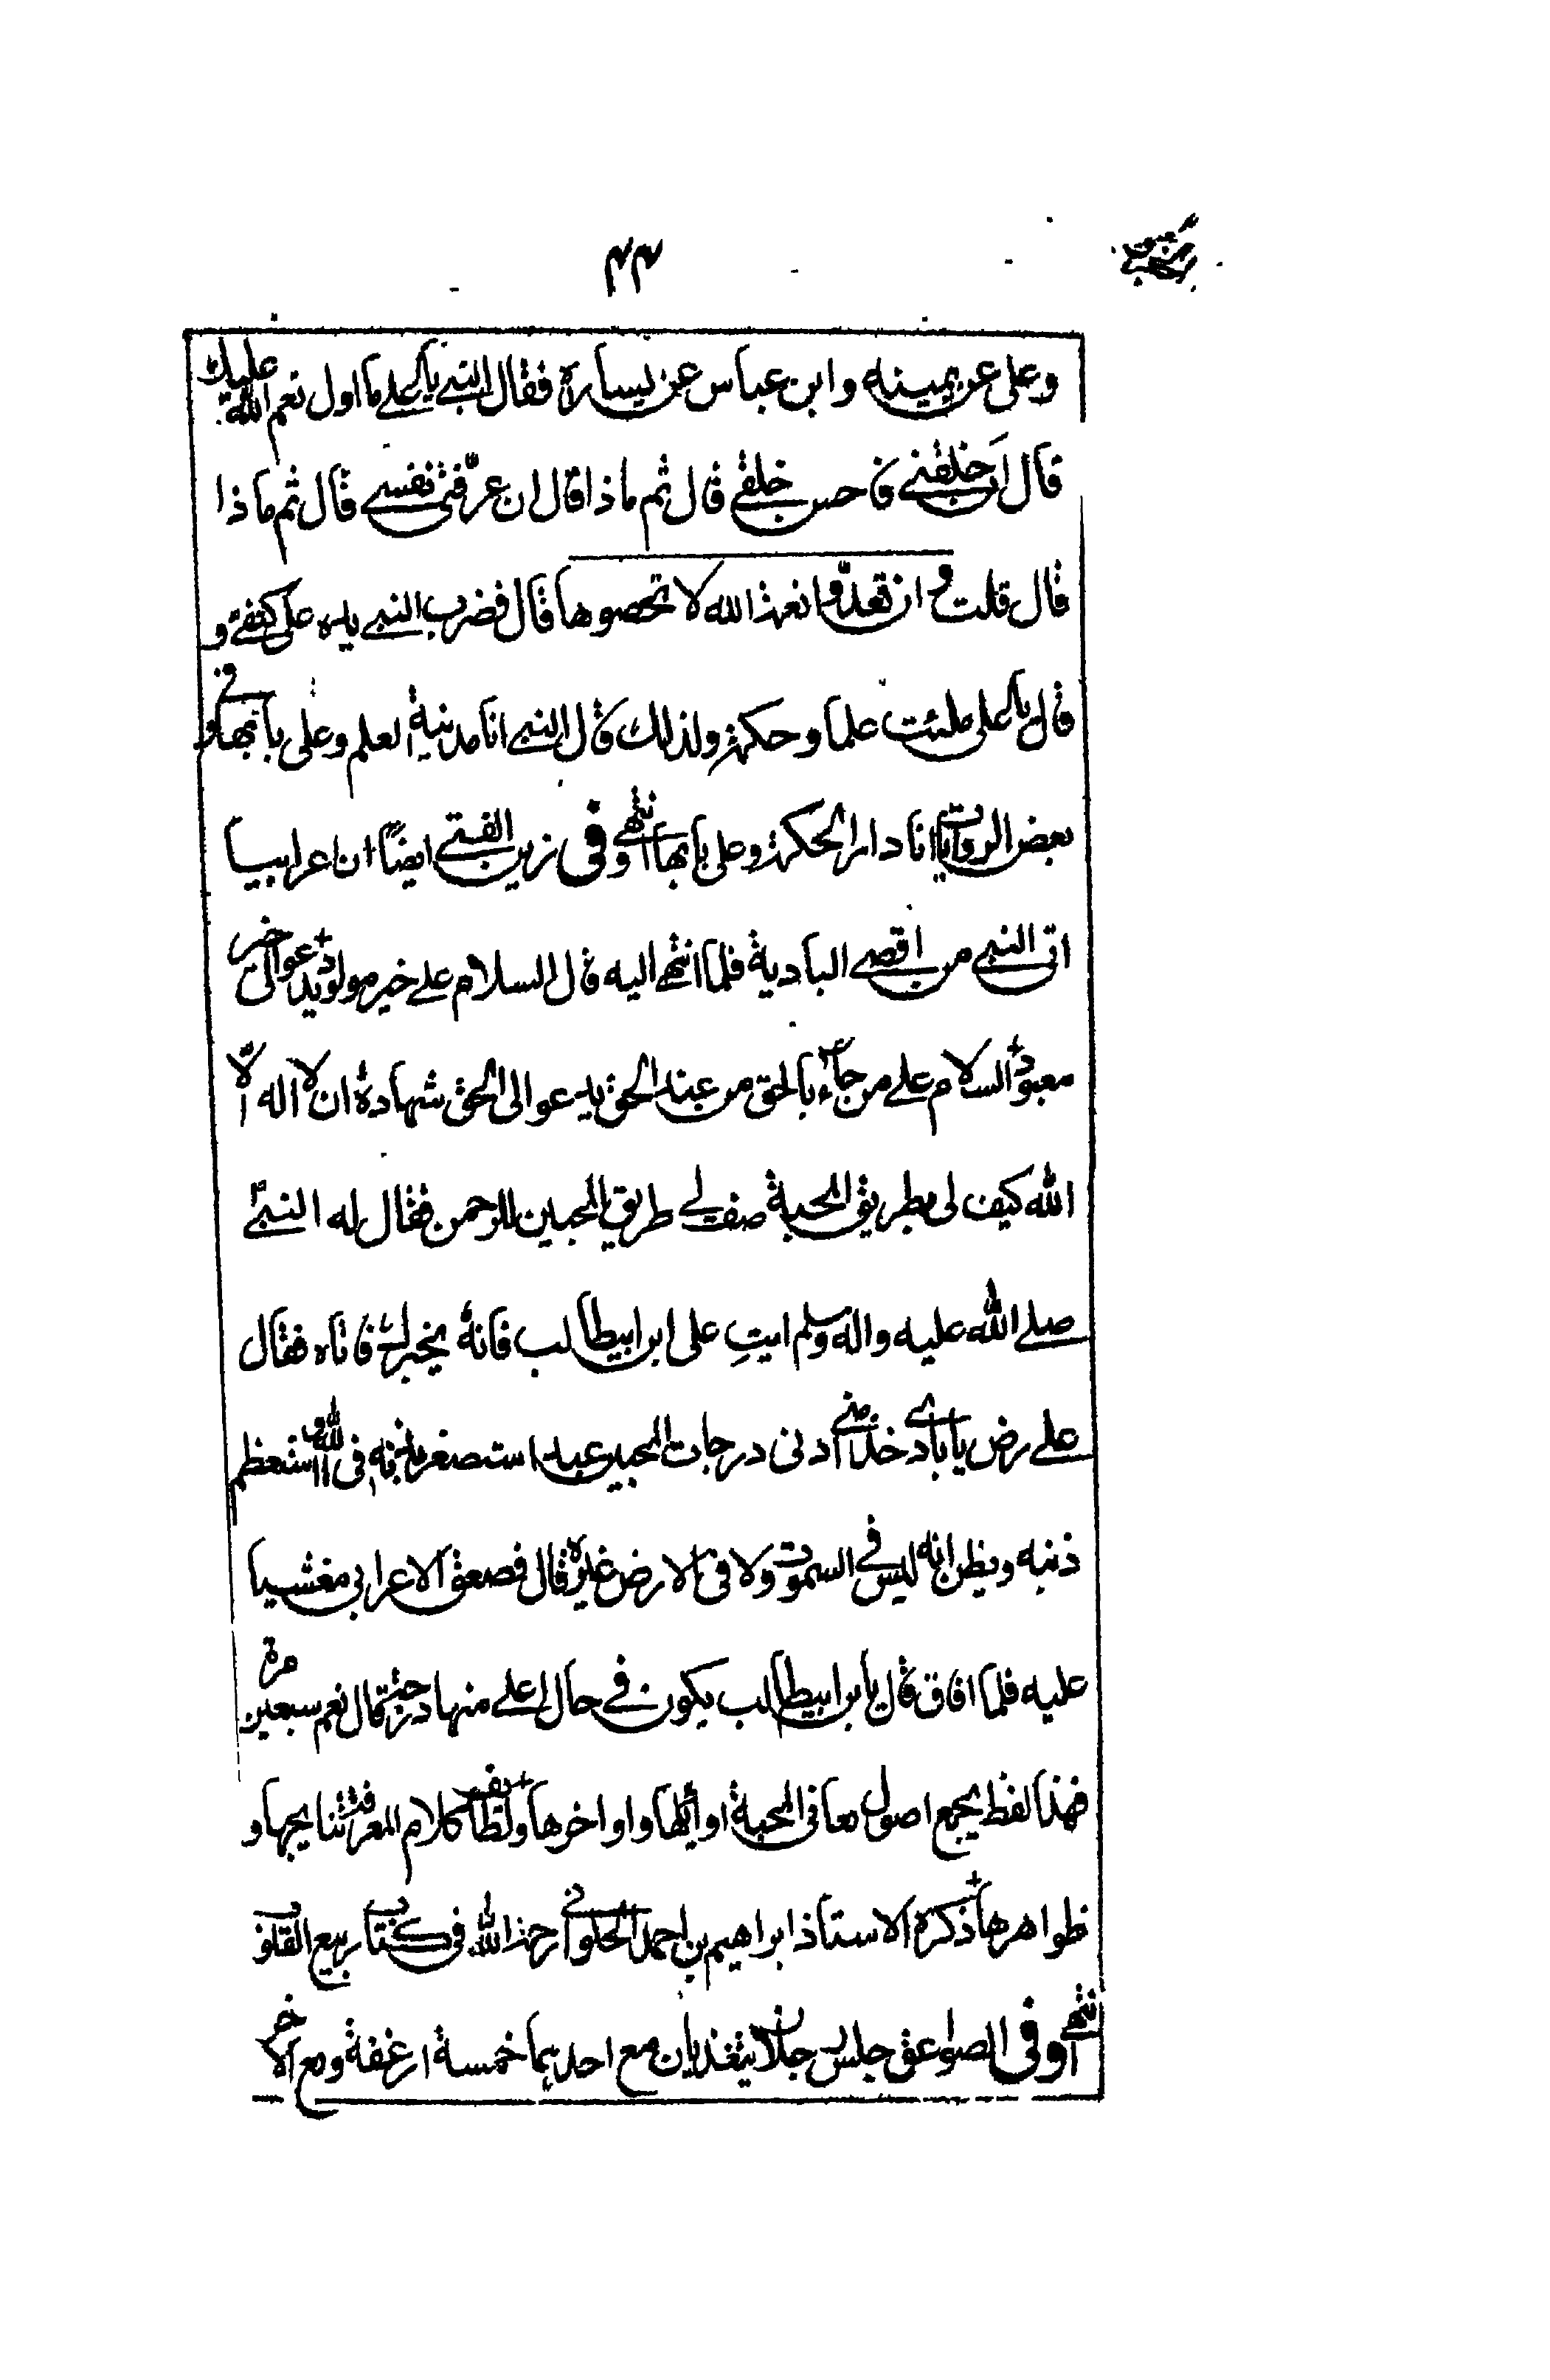 ٤٤
وعلى عن يمينه وابن عباس عن يساره فقال النبي يا علے ما اول نعم الله عليك
قال ان خلقني فاحسن خلقي قال ثم ماذا قال ان عرّفنى نفسے قال ثم ماذا
قال قلت وان تعدّوا نعمة الله لا تحصوها قال فضرب النبي يده على كتفے و
قال يا على ملئت علما وحكمة ولذلك قال النبي انا مدينة العلم وعلى بابها وفي
بعض الروايات انا دار الحكمة وعلى بابها انتهى وفى زين الفتى ايضًا ان عرابيا
اتى النبي من اقصے البادية فلما انتهے اليه قال السلام علے خير مولود يدعو الى خير
معبود السلام علے من جاء بالحق من عند الحق يدعو الى الحق شهادة ان لا اله الّا
الله كيف لى بطريق المحبة صف لے طريق المحبين للرحمن فقال له النبيّ
صلے الله عليه واله وسلم ايتِ على ابن ابيطالب فانه يخبرك فاتاه فقال
علے رض يا باد خذ منى ادنى درجات المحبين عبد استصغر فى الله واستعظم
ذنبه ويظن انه ليس في السموات ولا فى الارض غيره قال فصعق الاعرابى مغشيا
عليه فلما افاق قال يا ابن ابيطالب يكون في حال اعلے منها درجة قال نعم سبعين مرة
فهذا لفظ يجمع اصول معانى المحبة اوائلها واواخرها ولطائف كلام المعرفة نتايجها و
ظواهرها ذكره الاستاذ ابراهيم بن احمد الحلوانى رحمة الله فى كتاب ربيع القلوب
انتهى وفى الصواعق جلس رجلان يتغذيان مع احدهما خمسة ارغفة ومع الاخر